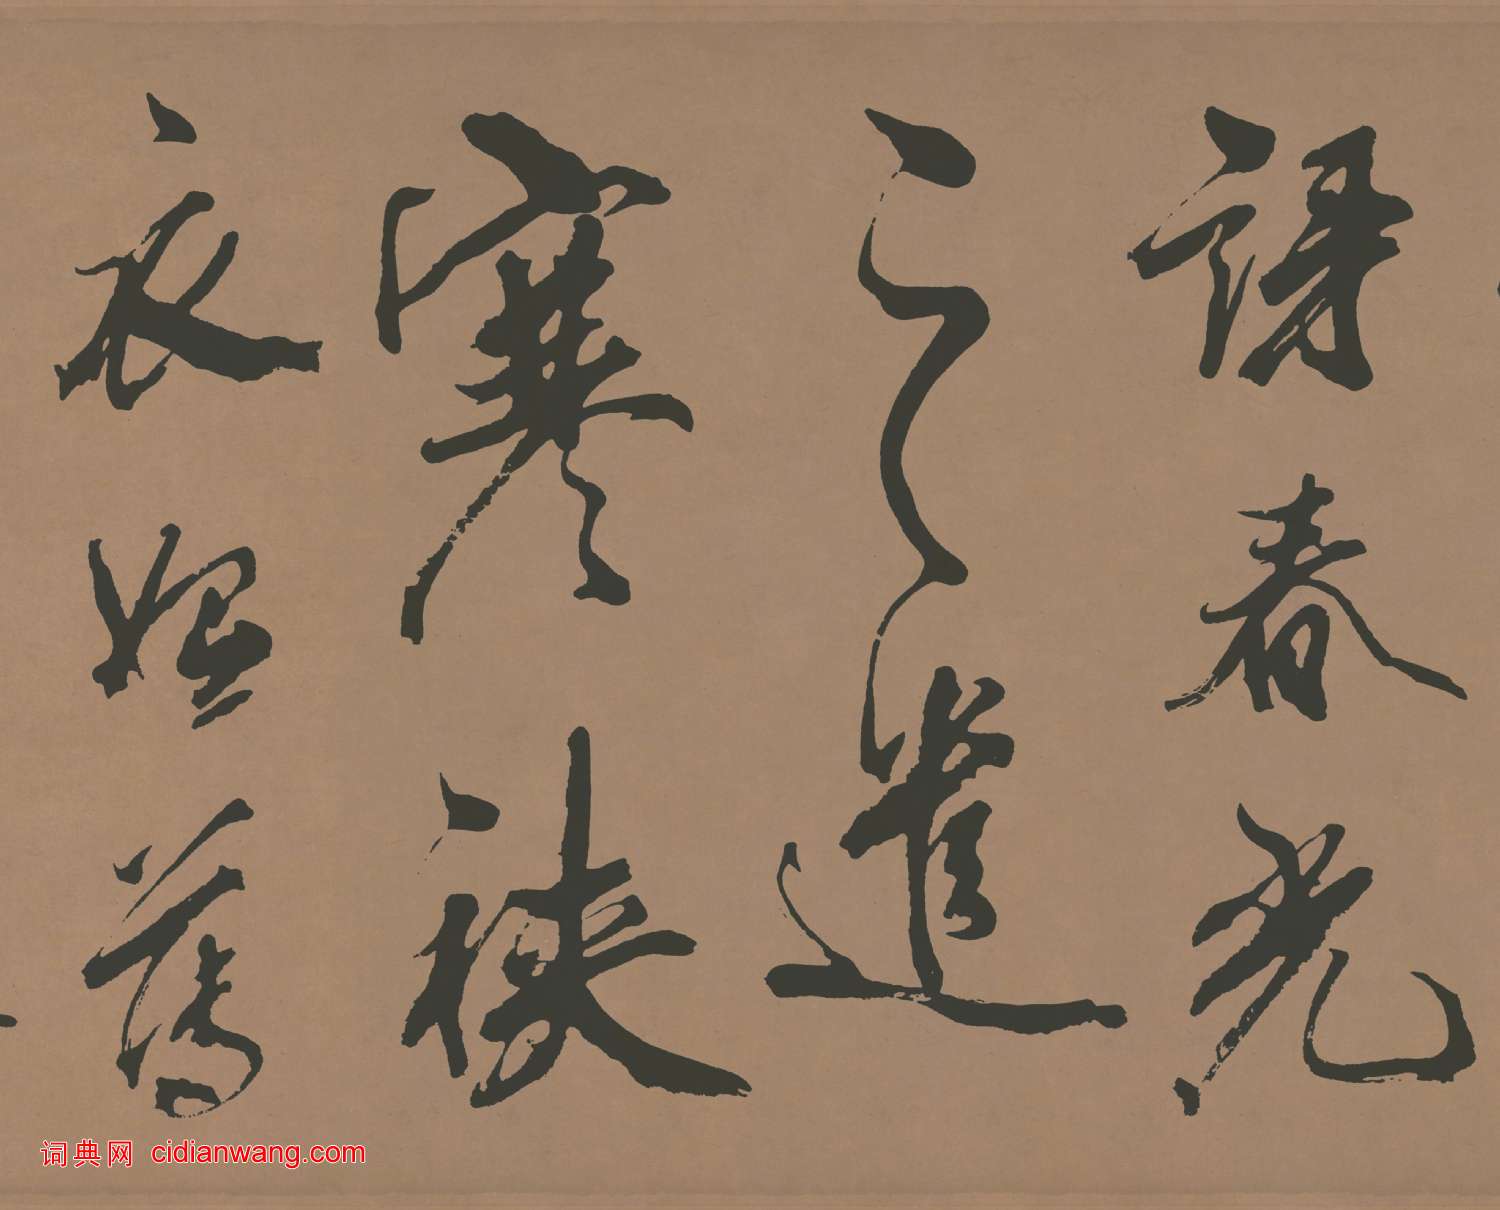 春光
之遣
寒裌
衣始薄
词典网 cidianwang.com